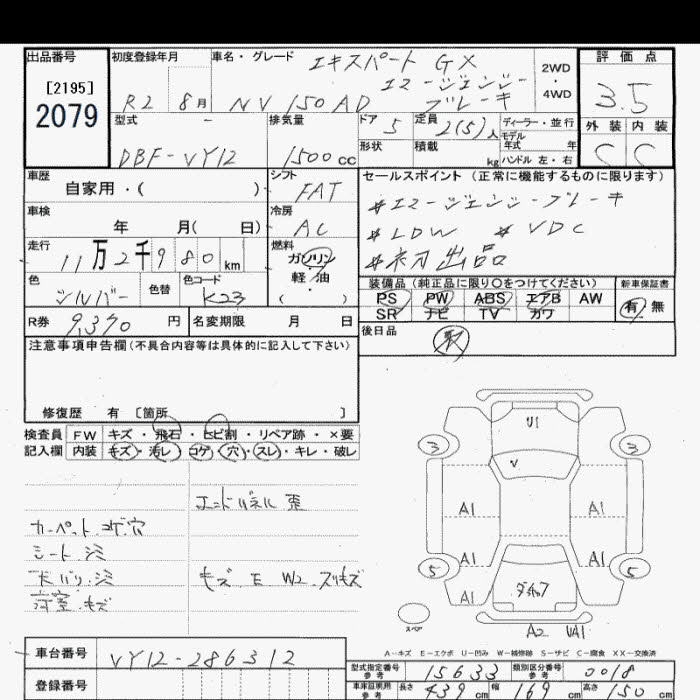 出品番号 初度登録年月 車名・グレード エキスパート GX 評価点
[2195] エマージェンシー 2WD
2079 R2 8月 NV150AD ブレーキ 4WD 3.5
型式 排気量 ドア 5 定員 2(5)人 ディーラー・並行 外装 内装
モデル
形状 積載 年式 年 C C
DBF-VY12 1500cc kg ハンドル 左・右
車歴 シフト セールスポイント(正常に機能するものに限ります)
自家用・( ) FAT #エマージェンシーブレーキ
車検 冷房 #LDW #VDC
年 月( 日) AC #初出品
走行 燃料
11万2千980km ガソリン
色 色替 色コード 軽・油 装備品(純正品に限り○をつけてください) 新車保証書
シルバー K23 ( ) PS PW ABS エアB AW 有 無
R券 9,370円 名変期限 月 日 SR ナビ TV カワ
注意事項申告欄(不具合内容等は具体的に記入して下さい) 後日品 取
修復歴 有 [箇所 ]
検査員 FW キズ・飛石・ヒビ割・リペア跡・×要
記入欄 内装 キズ・汚し・コゲ・穴・スレ・キレ・破レ
U1
3 3
V
エンドパネル
カーペットコゲ穴 A1 A1
シート シミ
天バリ シミ キズ E W2 スリキズ A1 A1
5 5
荷室 キズ A1 ダイヤフ A1
スペア
A2 UA1
A-キズ E-エクボ U-凹み W-補修跡 S-サビ C-腐食 XX-交換済
車台番号 VY12-286312
型式指定番号 参考 15633 類別区分番号 参考 0018
登録番号 車庫証明用 参考 長さ 439cm 幅 169cm 高さ 150cm